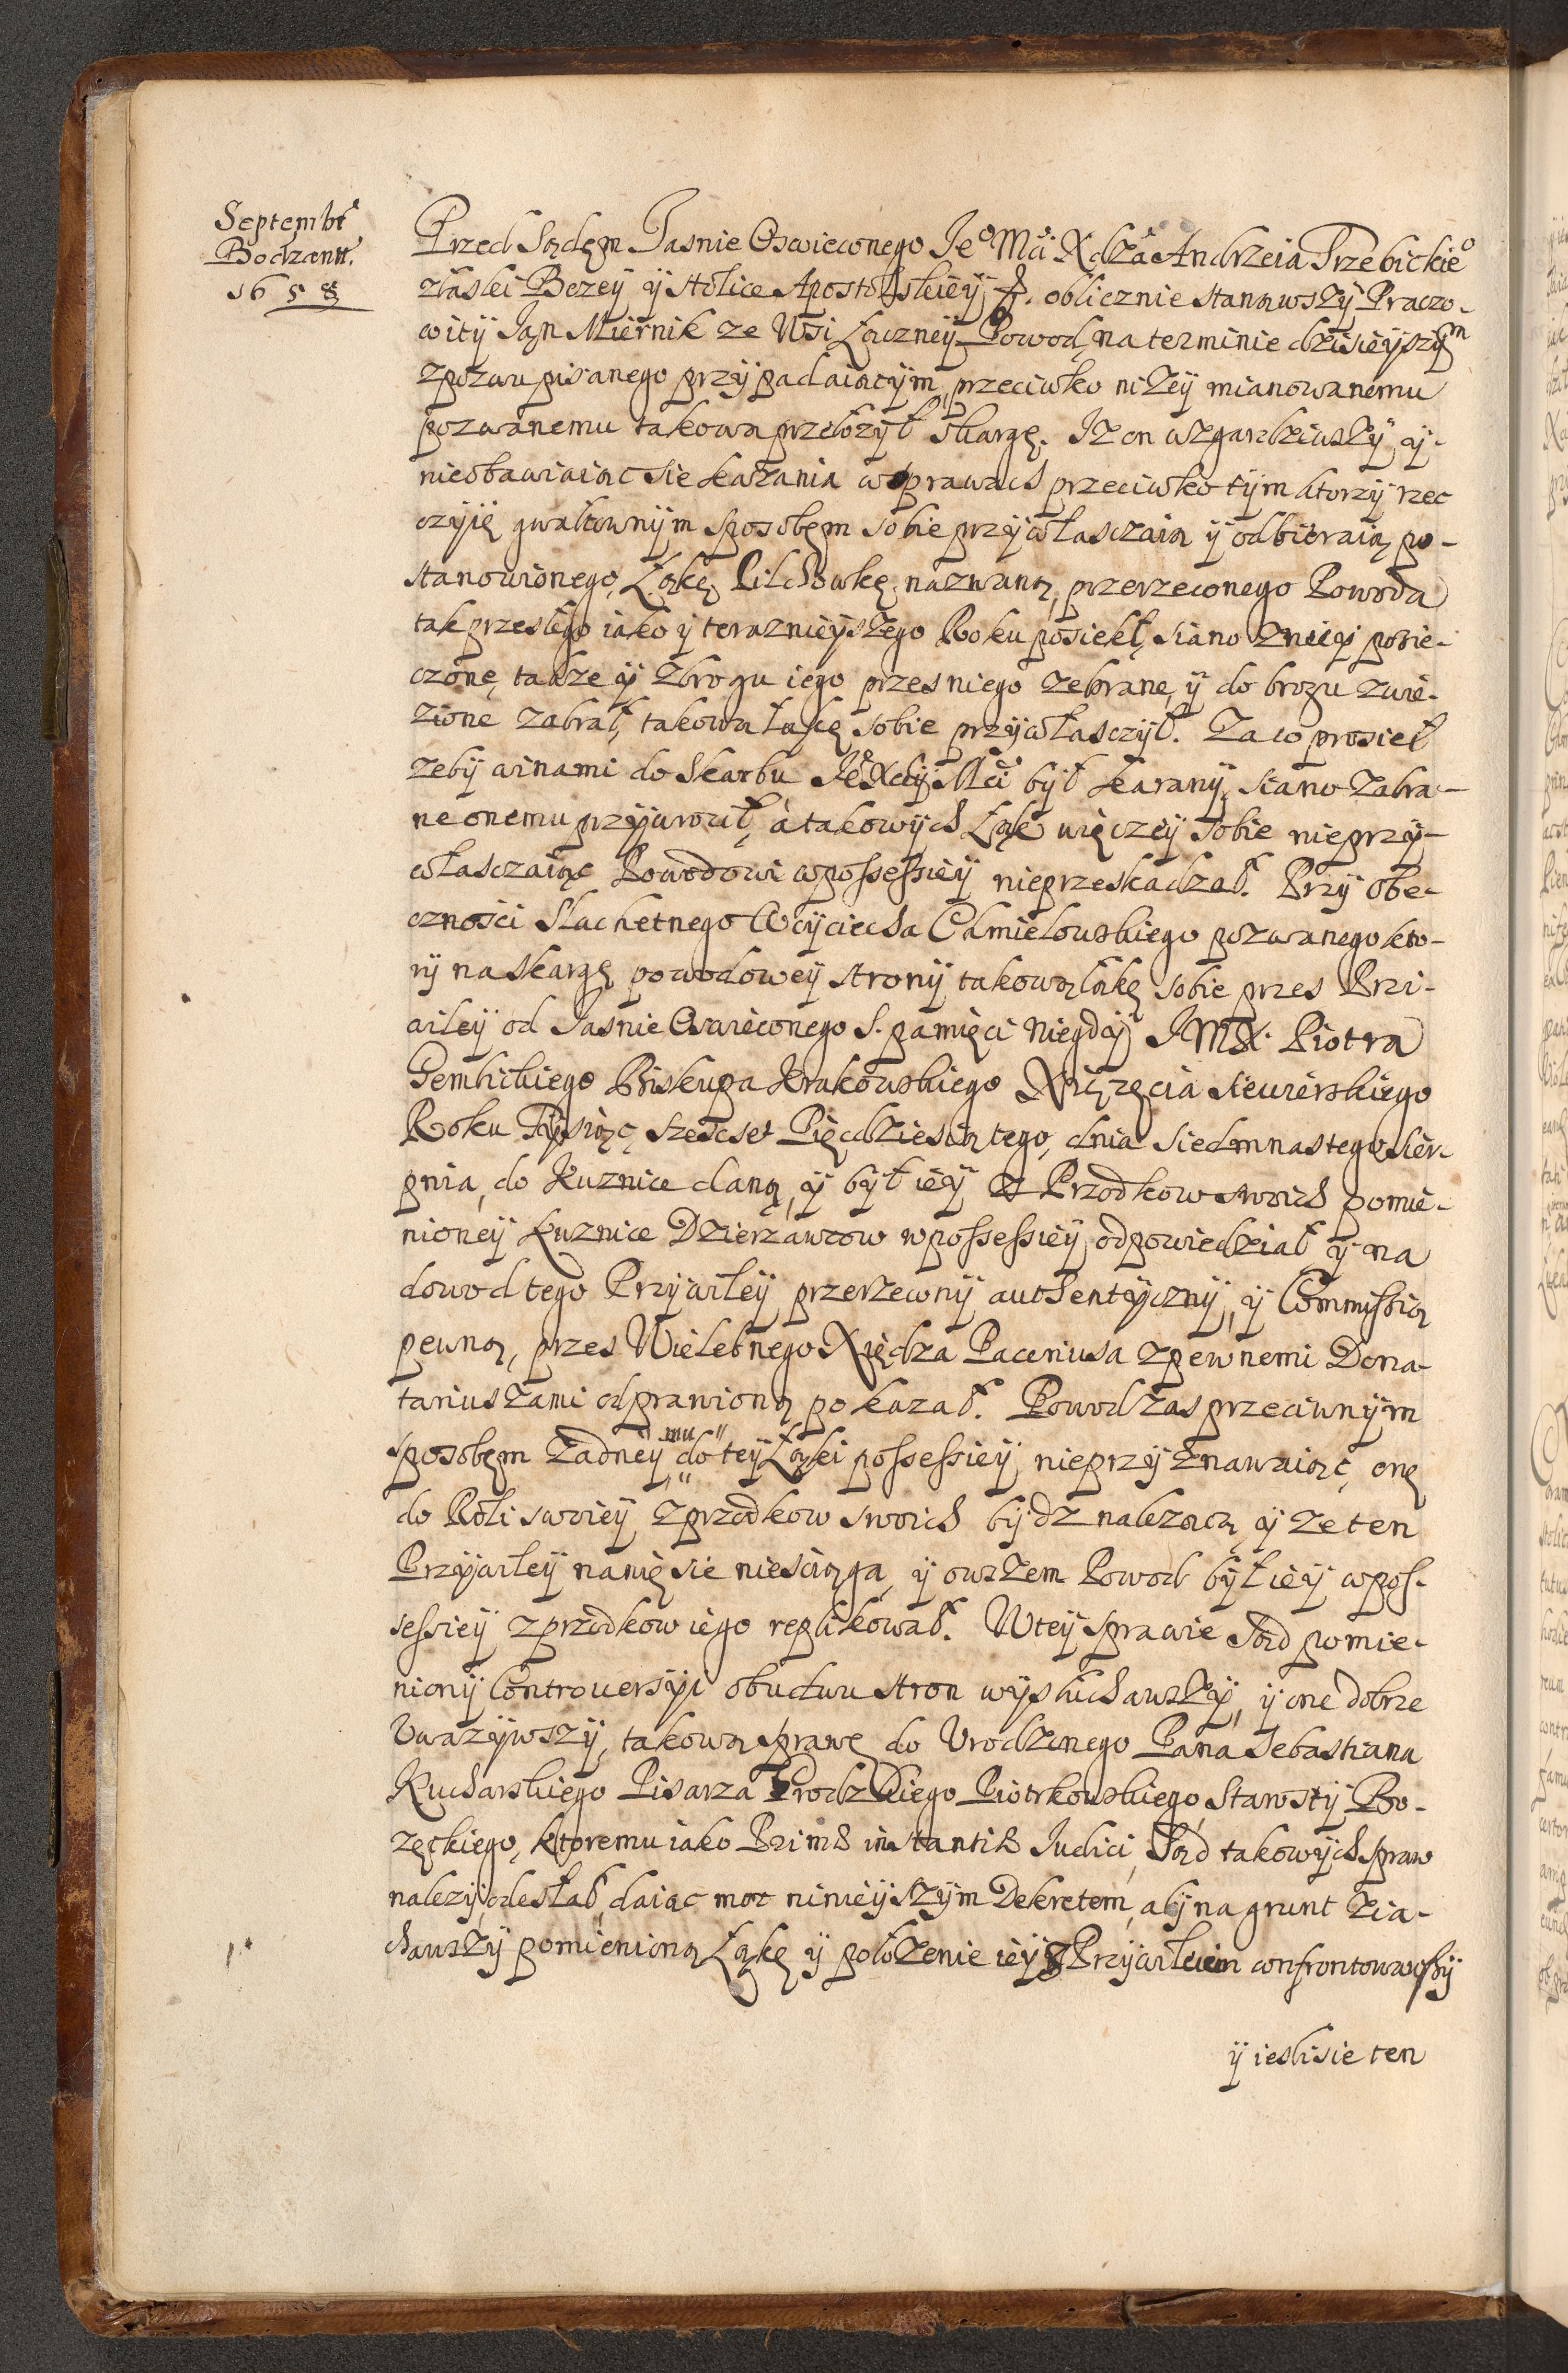 Septembr
Bodzent.
1658
Przed Sądęm Jasnie Oswieconego Jeº Mci Xdza Andrzeia Trzebickieº
złaski Bozey ÿ stolice Apostolskiey &. oblicznie stanąwszÿ Praczo-
witÿ Jąn Miernik ze Wsi Łączneÿ Powod, na terminie dzisieyszÿm
zpozwu pisanego przÿpadaiącÿm, przeciwko nizeÿ mianowanemu
pozwanemu takową przełozÿł skargę. Iz on wzgardziwszÿ ÿ
nieobawiaiąc sie karania w prawach przeciwko tÿm ktorzÿ rzec
czÿię gwałtownÿm sposobęm sobie przÿwłasczaią ÿ odbieraią po-
stanowionego, Łąkę Pilchowkę nazwaną, przerzeconego Powoda
tak przesłego iako ÿ teraznieÿszego Roku posiekł, siano znieÿ posie-
czone, takze ÿ zbrogu iego przes niego zebrane, ÿ do brogu zwie-
zione zabrał, takową łąkę sobie przÿwłasczÿł. Zaco prosieł
zebÿ winami do Skarbu Je Xcÿ Mci bÿł karanÿ, siano zabra-
ne onemu przÿwrocił, à takowÿch Łąk więczeÿ sobie nieprzÿ-
właszczaiąc Powodowi wpossessieÿ nieprzeskadzał. Przÿ obe-
cznosci Slachetnego Woÿciecha Chmielowskiego pozwanego kto-
rÿ na skargę powodoweÿ stronÿ takową łąkę sobie przes Przi-
wileÿ od Jasnie Oswieconego S. pamięci niegdÿ JMX. Piotra
Gembickiego Biskupa Krakowskiego Xiązęcia Siewierskiego
Roku Tÿsiąc szescset Pięcdziesiątego, dnia siedmnastego Sier-
pnia, do Kuznice daną, ÿ bÿł ieÿ z Przodkow swoich pomie-
nioneÿ kuznice Dzierzawcow wpossessieÿ, odpowiedział ÿ na
dowod tego Przÿwileÿ przerzeconÿ authentÿcznÿ, ÿ Commissią
pewną, przes Wielebnego Xiędza Paceniusa zpewnemi Dona-
tariuszami odprawioną pokazał. Powod zas przeciwnÿm
sposobęm zadneÿ mu do teÿ Łąki possessieÿ nieprzÿznawaiąc, onę
do Roli swoieÿ zprzodkow swoich bÿdz nalezącą ÿ ze ten
Przÿwileÿ nanię sie niesciąga, ÿ owszem Powod bÿł ieÿ wpos-
sessieÿ zprzodkow iego replikował. W teÿ sprawie Sąd pomie-
nionÿ Controuersÿi obudwu stron wÿsłuchawszÿ, ÿ one dobrze
Uwazÿwszÿ, takową sprawę do Urodzonego Pana Sebastiana
Kucharskiego Pisarza Grodzkiego Piotrkowskiego, Starostÿ Bo-
zęckiego, ktoremu iako Primæ instantiæ Judici, Sąd takowÿch spraw
nalezÿ, odesłał, daiąc moc ninieÿszÿm Dekretem, abÿ na grunt zia-
chawszÿ pomienioną Łąkę ÿ połozenie ieÿ z Przÿwileiem confrontowawszÿ
ÿ iesli sie ten